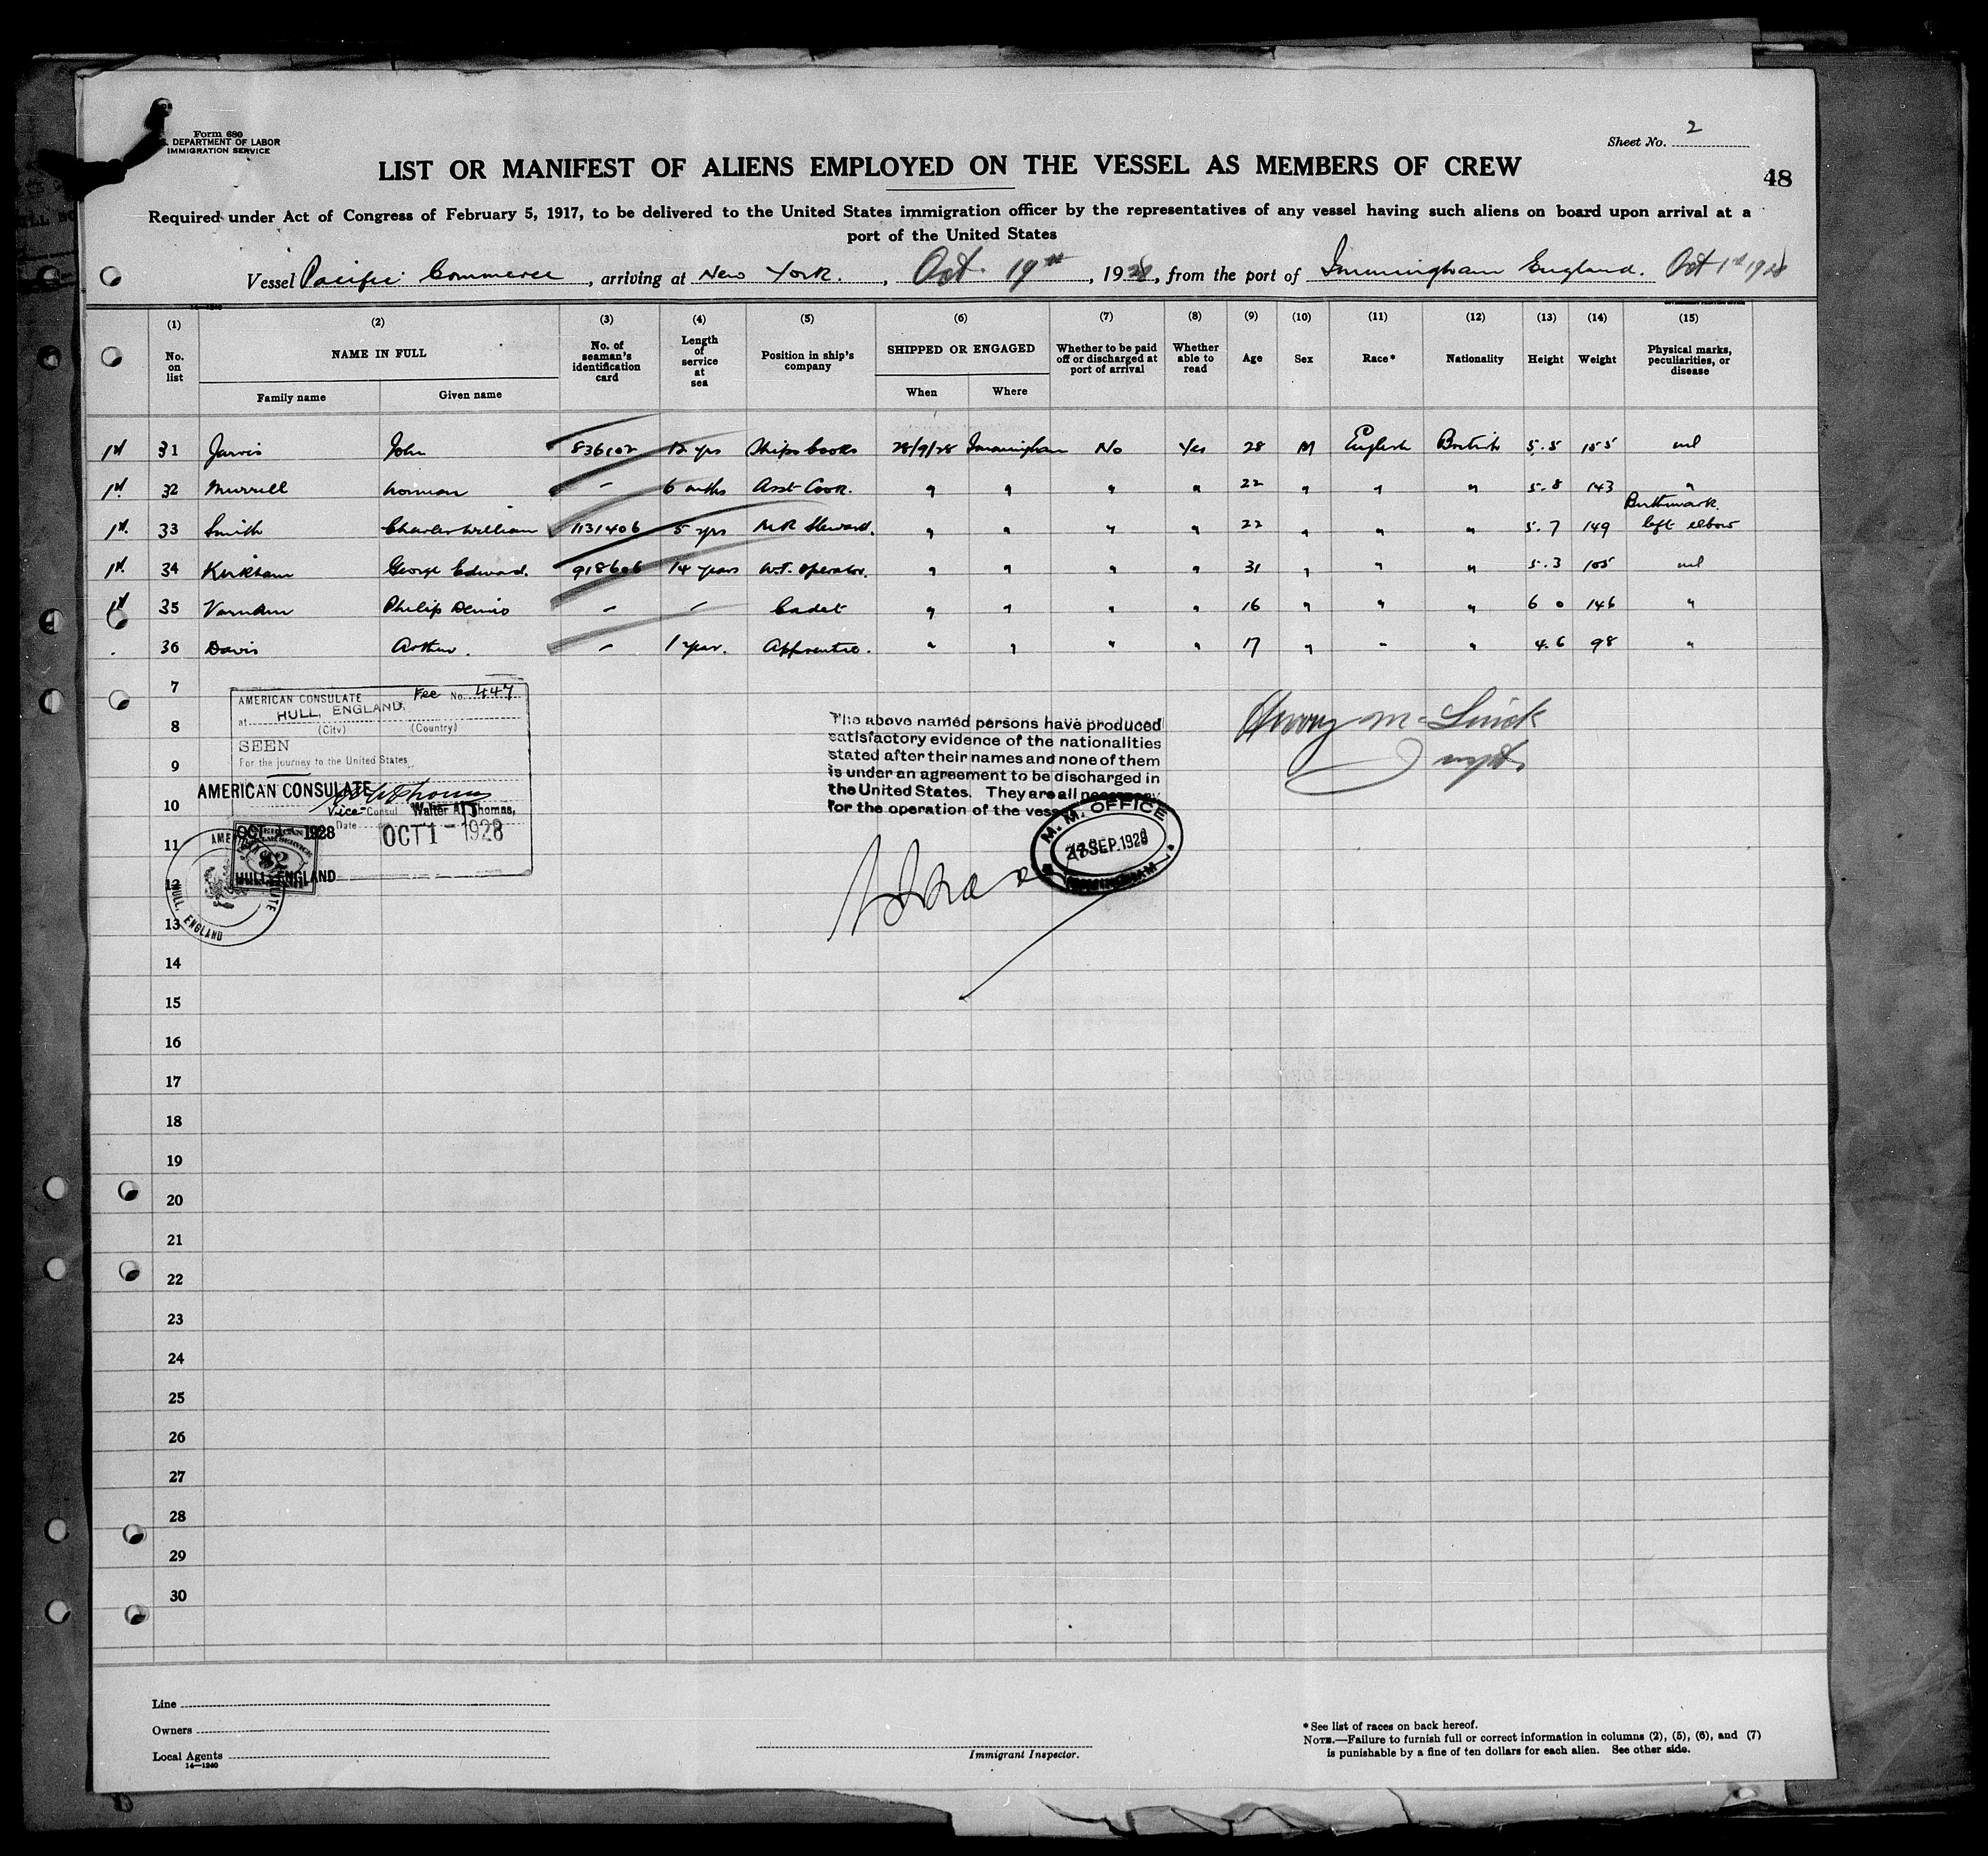 Form 680
DEPARTMENT OF LABOR
IMMIGRATION SERVICE
Sheet No. 2
LIST OR MANIFEST OF ALIENS EMPLOYED ON THE VESSEL AS MEMBERS OF CREW
48
Required under Act of Congress of February 5, 1917, to be delivered to the United States immigration officer by the representatives of any vessel having such aliens on board upon arrival at a
port of the United States
Vessel Pacific Commerce, arriving at New York., Oct. 19th, 1928, from the port of Immingham England. Oct 1st 1928
(1) (2) (3) (4) (5) (6) (7) (8) (9) (10) (11) (12) (13) (14) (15)
No. on list NAME IN FULL No. of seaman's identification card Length of service at sea Position in ship's company SHIPPED OR ENGAGED Whether to be paid off or discharged at port of arrival Whether able to read Age Sex Race* Nationality Height Weight Physical marks, peculiarities, or disease
Family name Given name When Where
1st 31 Jarvis John 836102 12 yrs Ships Cook 28/9/28 Immingham No Yes 28 M English British 5.5 155 nil
1st. 32 Murrell Norman – 6 mths Asst Cook. " " " " 22 " " " 5.8 143 "
1st. 33 Smith Charles William 1131406 5 yrs M.R Steward. " " " " 22 " " " 5.7 149 Birthmark. left elbow
1st. 34 Kirkham George Edward. 918606 14 years W.T. operator. " " " " 31 " " " 5.3 105 nil
1st 35 Philip Denis – – Cadet " " " " 16 " " " 6 0 146 "
36 Davis Arthur. – 1 year. Apprentice. " " " " 17 " " " 4.6 98 "
7
8
9
10
11
12
13
14
15
16
17
18
19
20
21
22
23
24
25
26
27
28
29
30
AMERICAN CONSULATE Fee No. 447
at HULL, ENGLAND.
(City) (Country)
SEEN
For the journey to the United States
AMERICAN CONSULATE
Vice-Consul Walter A. Thomas,
Date OCT 1 - 1928
OCT 1 1928
HULL, ENGLAND
AMERICAN CONSULATE
HULL, ENGLAND
The above named persons have produced
satisfactory evidence of the nationalities
stated after their names and none of them
is under an agreement to be discharged in
the United States. They are all necessary
for the operation of the vessel
M. M. OFFICE
SEP.1928
IMMINGHAM
Line
Owners
Local Agents
14—1240
Immigrant Inspector.
*See list of races on back hereof.
NOTE.—Failure to furnish full or correct information in columns (2), (5), (6), and (7)
is punishable by a fine of ten dollars for each alien. See other side.